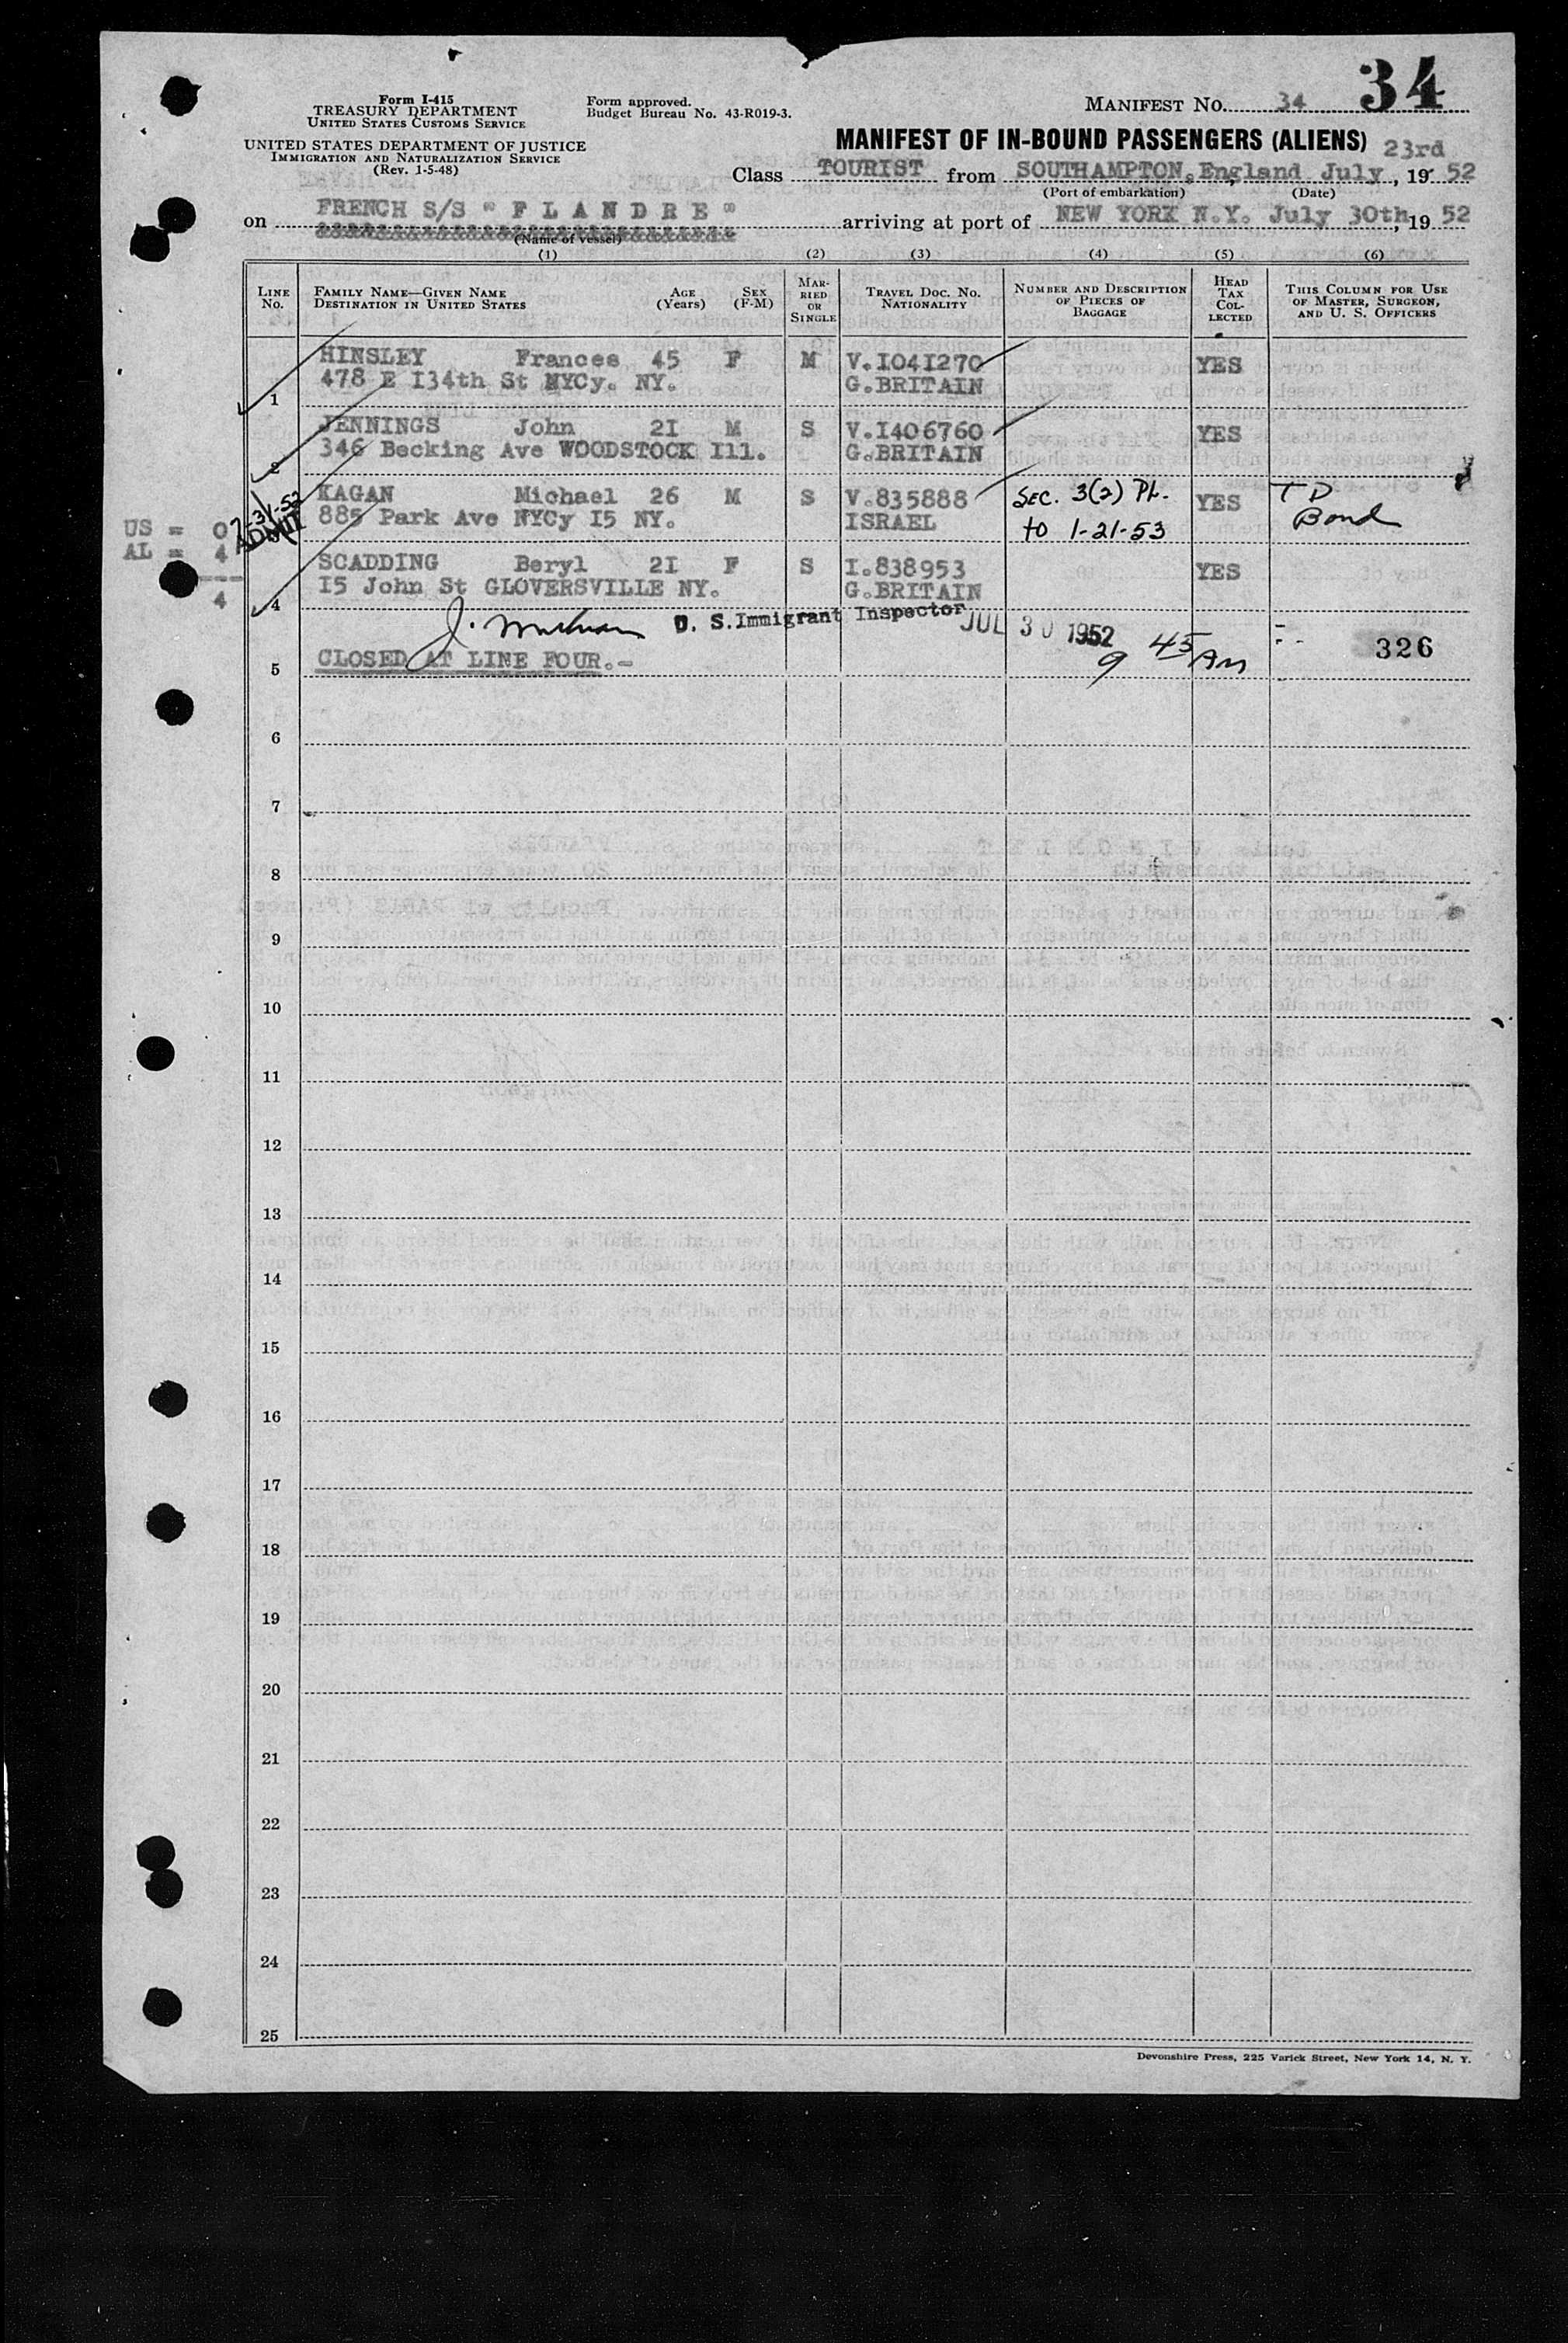 34
Form I-415
TREASURY DEPARTMENT
UNITED STATES CUSTOMS SERVICE
UNITED STATES DEPARTMENT OF JUSTICE
IMMIGRATION AND NATURALIZATION SERVICE
(Rev. 1-5-48)
Form approved.
Budget Bureau No. 43-R019-3.
MANIFEST NO. 34
MANIFEST OF IN-BOUND PASSENGERS (ALIENS)
Class TOURIST from SOUTHAMPTON, England July 23rd, 19 52
(Port of embarkation) (Date)
on FRENCH S/S "F L A N D R E" arriving at port of NEW YORK N.Y. July 30th, 19 52
(Name of vessel)
(1) (2) (3) (4) (5) (6)
LINE NO. FAMILY NAME—GIVEN NAME DESTINATION IN UNITED STATES AGE (Years) SEX (F-M) MARRIED OR SINGLE TRAVEL DOC. NO. NATIONALITY NUMBER AND DESCRIPTION OF PIECES OF BAGGAGE HEAD TAX COLLECTED THIS COLUMN FOR USE OF MASTER, SURGEON, AND U. S. OFFICERS
HINSLEY Frances 45 F M V.I041270 YES
1 478 E I34th St NYCy. NY. G.BRITAIN
JENNINGS John 2I M S V.I406760 YES
2 346 Becking Ave WOODSTOCK Ill. G.BRITAIN
KAGAN Michael 26 M S V.835888 SEC. 3(2) PL. YES T D
885 Park Ave NYCy I5 NY. ISRAEL to 1-21-53 Bond
7-31-52
ADMIT
US = 0
AL = 4
4
SCADDING Beryl 2I F S I.838953 YES
4 I5 John St GLOVERSVILLE NY. G.BRITAIN
U. S. Immigrant Inspector JUL 30 1952
9 45 AM
326
5 CLOSED AT LINE FOUR.-
6
7
8
9
10
11
12
13
14
15
16
17
18
19
20
21
22
23
24
25
Devonshire Press, 225 Varick Street, New York 14, N. Y.